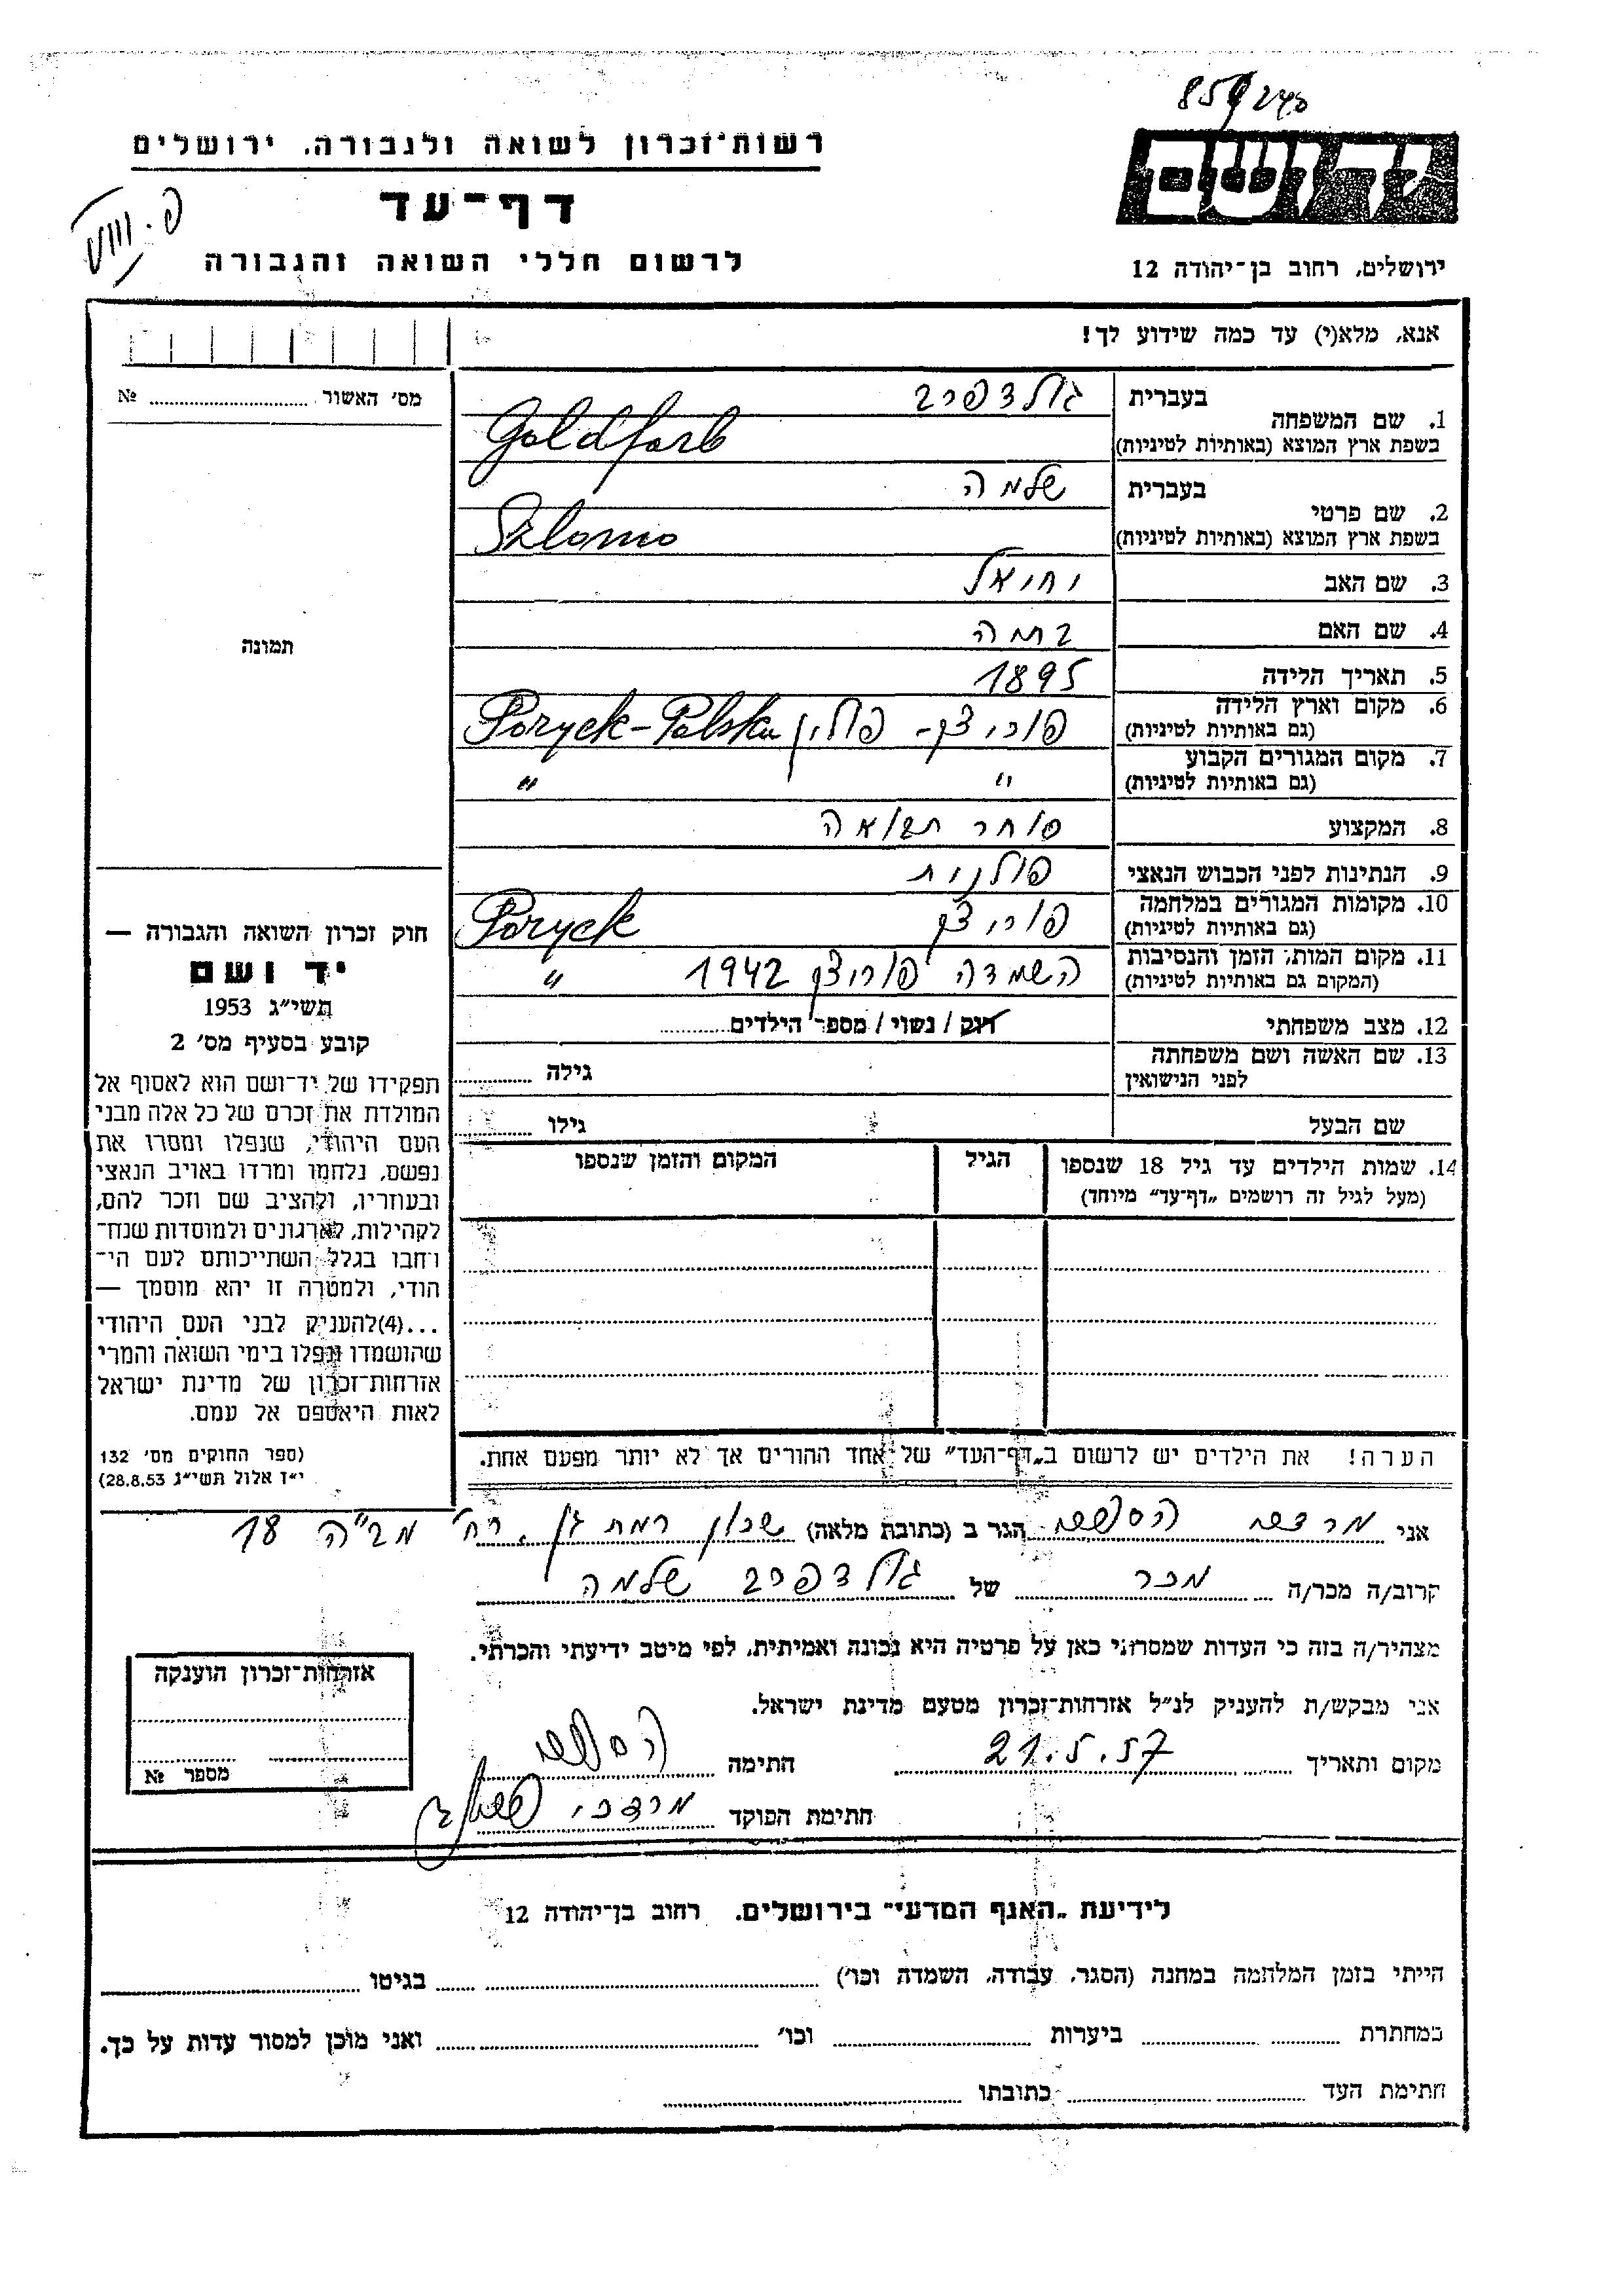 859/240
רשות־זכרון לשואה ולגבורה, ירושלים
יד ושם
דף־עד
פ. VIII
לרשום חללי השואה והגבורה
ירושלים, רחוב בן־יהודה 12
אנא, מלא(י) עד כמה שידוע לך!
מס׳ האשור ........ №
תמונה
חוק זכרון השואה והגבורה —
יד ושם
תשי״ג 1953
קובע בסעיף מס׳ 2
תפקידו של יד־ושם הוא לאסוף אל
המולדת את זכרם של כל אלה מבני
העם היהודי, שנפלו ומסרו את
נפשם, נלחמו ומרדו באויב הנאצי
ובעוזריו, ולהציב שם וזכר להם,
לקהילות, לארגונים ולמוסדות שנח־
רחבו בגלל השתייכותם לעם הי־
הודי, ולמטרה זו יהא מוסמך —
...(4)להעניק לבני העם היהודי
שהושמדו ונפלו בימי השואה והמרי
אזרחות־זכרון של מדינת ישראל
לאות היאספם אל עמם.
(ספר החוקים מס׳ 132
י״ז אלול תשי״ג 28.8.53)
1. שם המשפחה בעברית גולדפרב
בשפת ארץ המוצא (באותיות לטיניות) Goldfarb
2. שם פרטי בעברית שלמה
בשפת ארץ המוצא (באותיות לטיניות) Szlomo
3. שם האב יחיאל
4. שם האם
5. תאריך הלידה 1895
6. מקום וארץ הלידה פוריצק - פולין Poryck-Polska
(גם באותיות לטיניות)
7. מקום המגורים הקבוע " "
(גם באותיות לטיניות)
8. המקצוע סוחר תבואה
9. הנתינות לפני הכבוש הנאצי פולנית
10. מקומות המגורים במלחמה פוריצק Poryck
(גם באותיות לטיניות)
11. מקום המות, הזמן והנסיבות השמדה פוריצק 1942 "
(המקום גם באותיות לטיניות)
12. מצב משפחתי רוק / נשוי / מספר הילדים........
13. שם האשה ושם משפחתה גילה ........
לפני הנישואין
שם הבעל גילו ........
14. שמות הילדים עד גיל 18 שנספו הגיל המקום והזמן שנספו
(מעל לגיל זה רושמים „דף־עד״ מיוחד)
הערה! את הילדים יש לרשום ב„דף־העד״ של אחד ההורים אך לא יותר מפעם אחת.
אני הגר ב (כתובת מלאה) שכון רמת גן, רח׳ 18
קרוב/ה מכר/ה מכר של גולדפרב שלמה
מצהיר/ה בזה כי העדות שמסרתי כאן על פרטיה היא נכונה ואמיתית, לפי מיטב ידיעתי והכרתי.
אני מבקש/ת להעניק לנ״ל אזרחות־זכרון מטעם מדינת ישראל.
מקום ותאריך 21.5.57 חתימה
חתימת הפוקד מרדכי
אזרחות־זכרון הוענקה
מספר №
לידיעת „האגף המדעי״ בירושלים, רחוב בן־יהודה 12
הייתי בזמן המלחמה במחנה (הסגר, עבודה, השמדה וכו׳) ........ בגיטו ........
במחתרת ........ ביערות ........ וכו׳ ........ ואני מוכן למסור עדות על כך.
חתימת העד ........ כתובתו ........